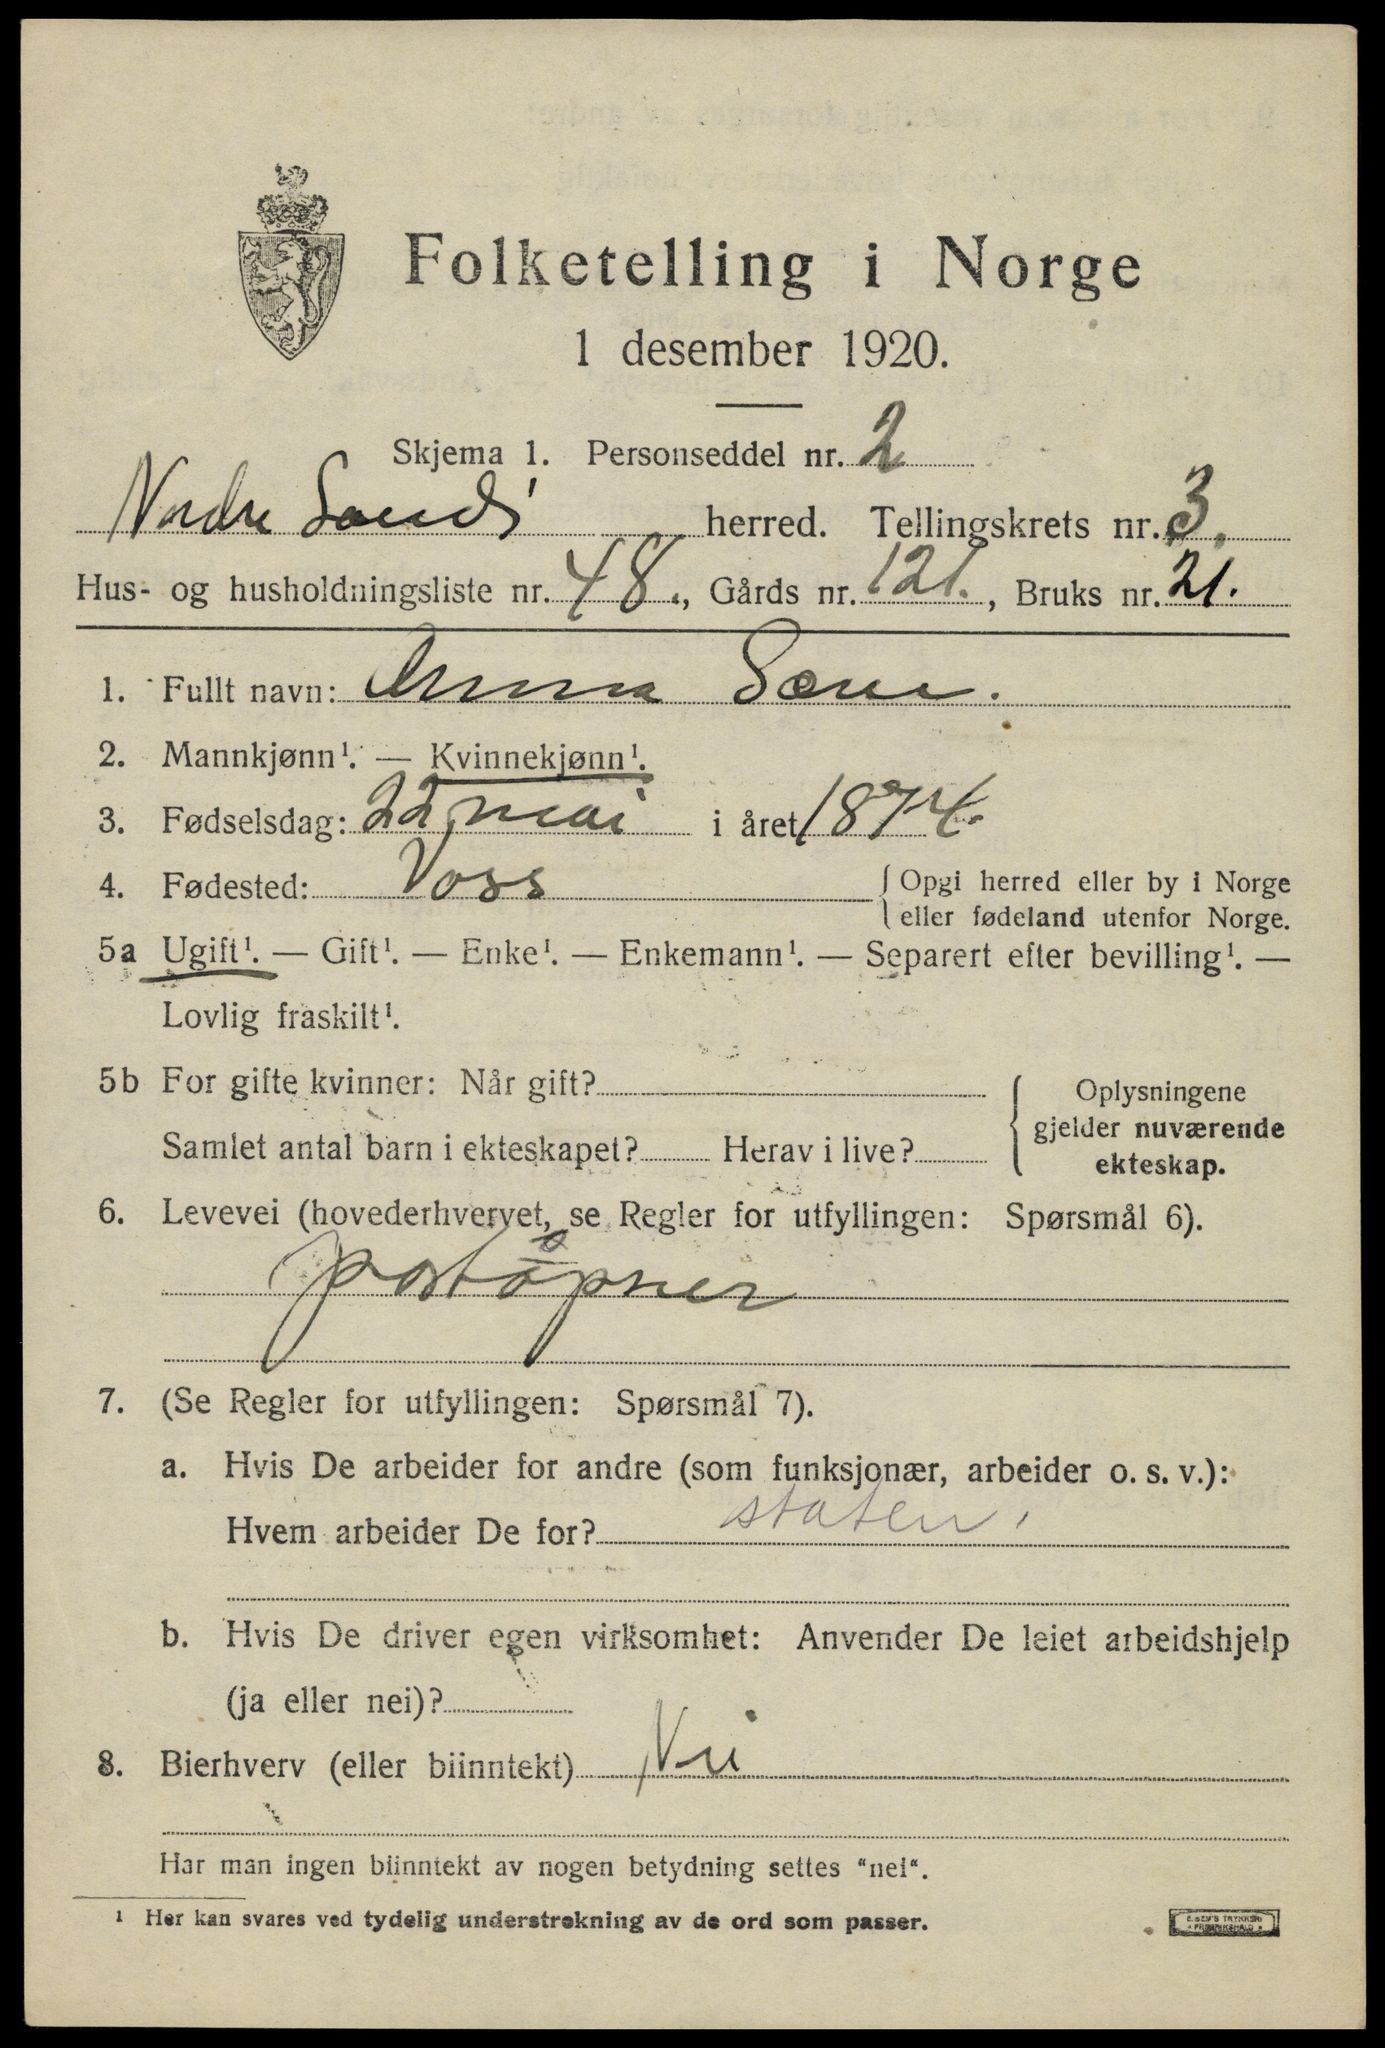 Folketelling i Norge
1 desember 1920.
Skjema 1. Personseddel nr. 2
Nordre Land herred. Tellingskrets nr. 3.
Hus- og husholdningsliste nr. 48., Gårds nr. 121., Bruks nr. 21.
1. Fullt navn: Anna
2. Mannkjønn¹. — Kvinnekjønn¹.
3. Fødselsdag: 22 mai i året 1874.
4. Fødested: Voss { Opgi herred eller by i Norge
eller fødeland utenfor Norge.
5a Ugift¹. — Gift¹. — Enke¹. — Enkemann¹. — Separert efter bevilling¹. —
Lovlig fraskilt¹.
5b For gifte kvinner: Når gift? { Oplysningene
gjelder nuværende
Samlet antal barn i ekteskapet? Herav i live? ekteskap.
6. Levevei (hovederhvervet, se Regler for utfyllingen: Spørsmål 6).
postopner
7. (Se Regler for utfyllingen: Spørsmål 7).
a. Hvis De arbeider for andre (som funksjonær, arbeider o. s. v.):
Hvem arbeider De for? staten.
b. Hvis De driver egen virksomhet: Anvender De leiet arbeidshjelp
(ja eller nei)?
8. Bierhverv (eller biinntekt) Nei
Har man ingen biinntekt av nogen betydning settes "nei".
¹ Her kan svares ved tydelig understrekning av de ord som passer.
E. SEM'S TRYKKERI
FREDRIKSHALD